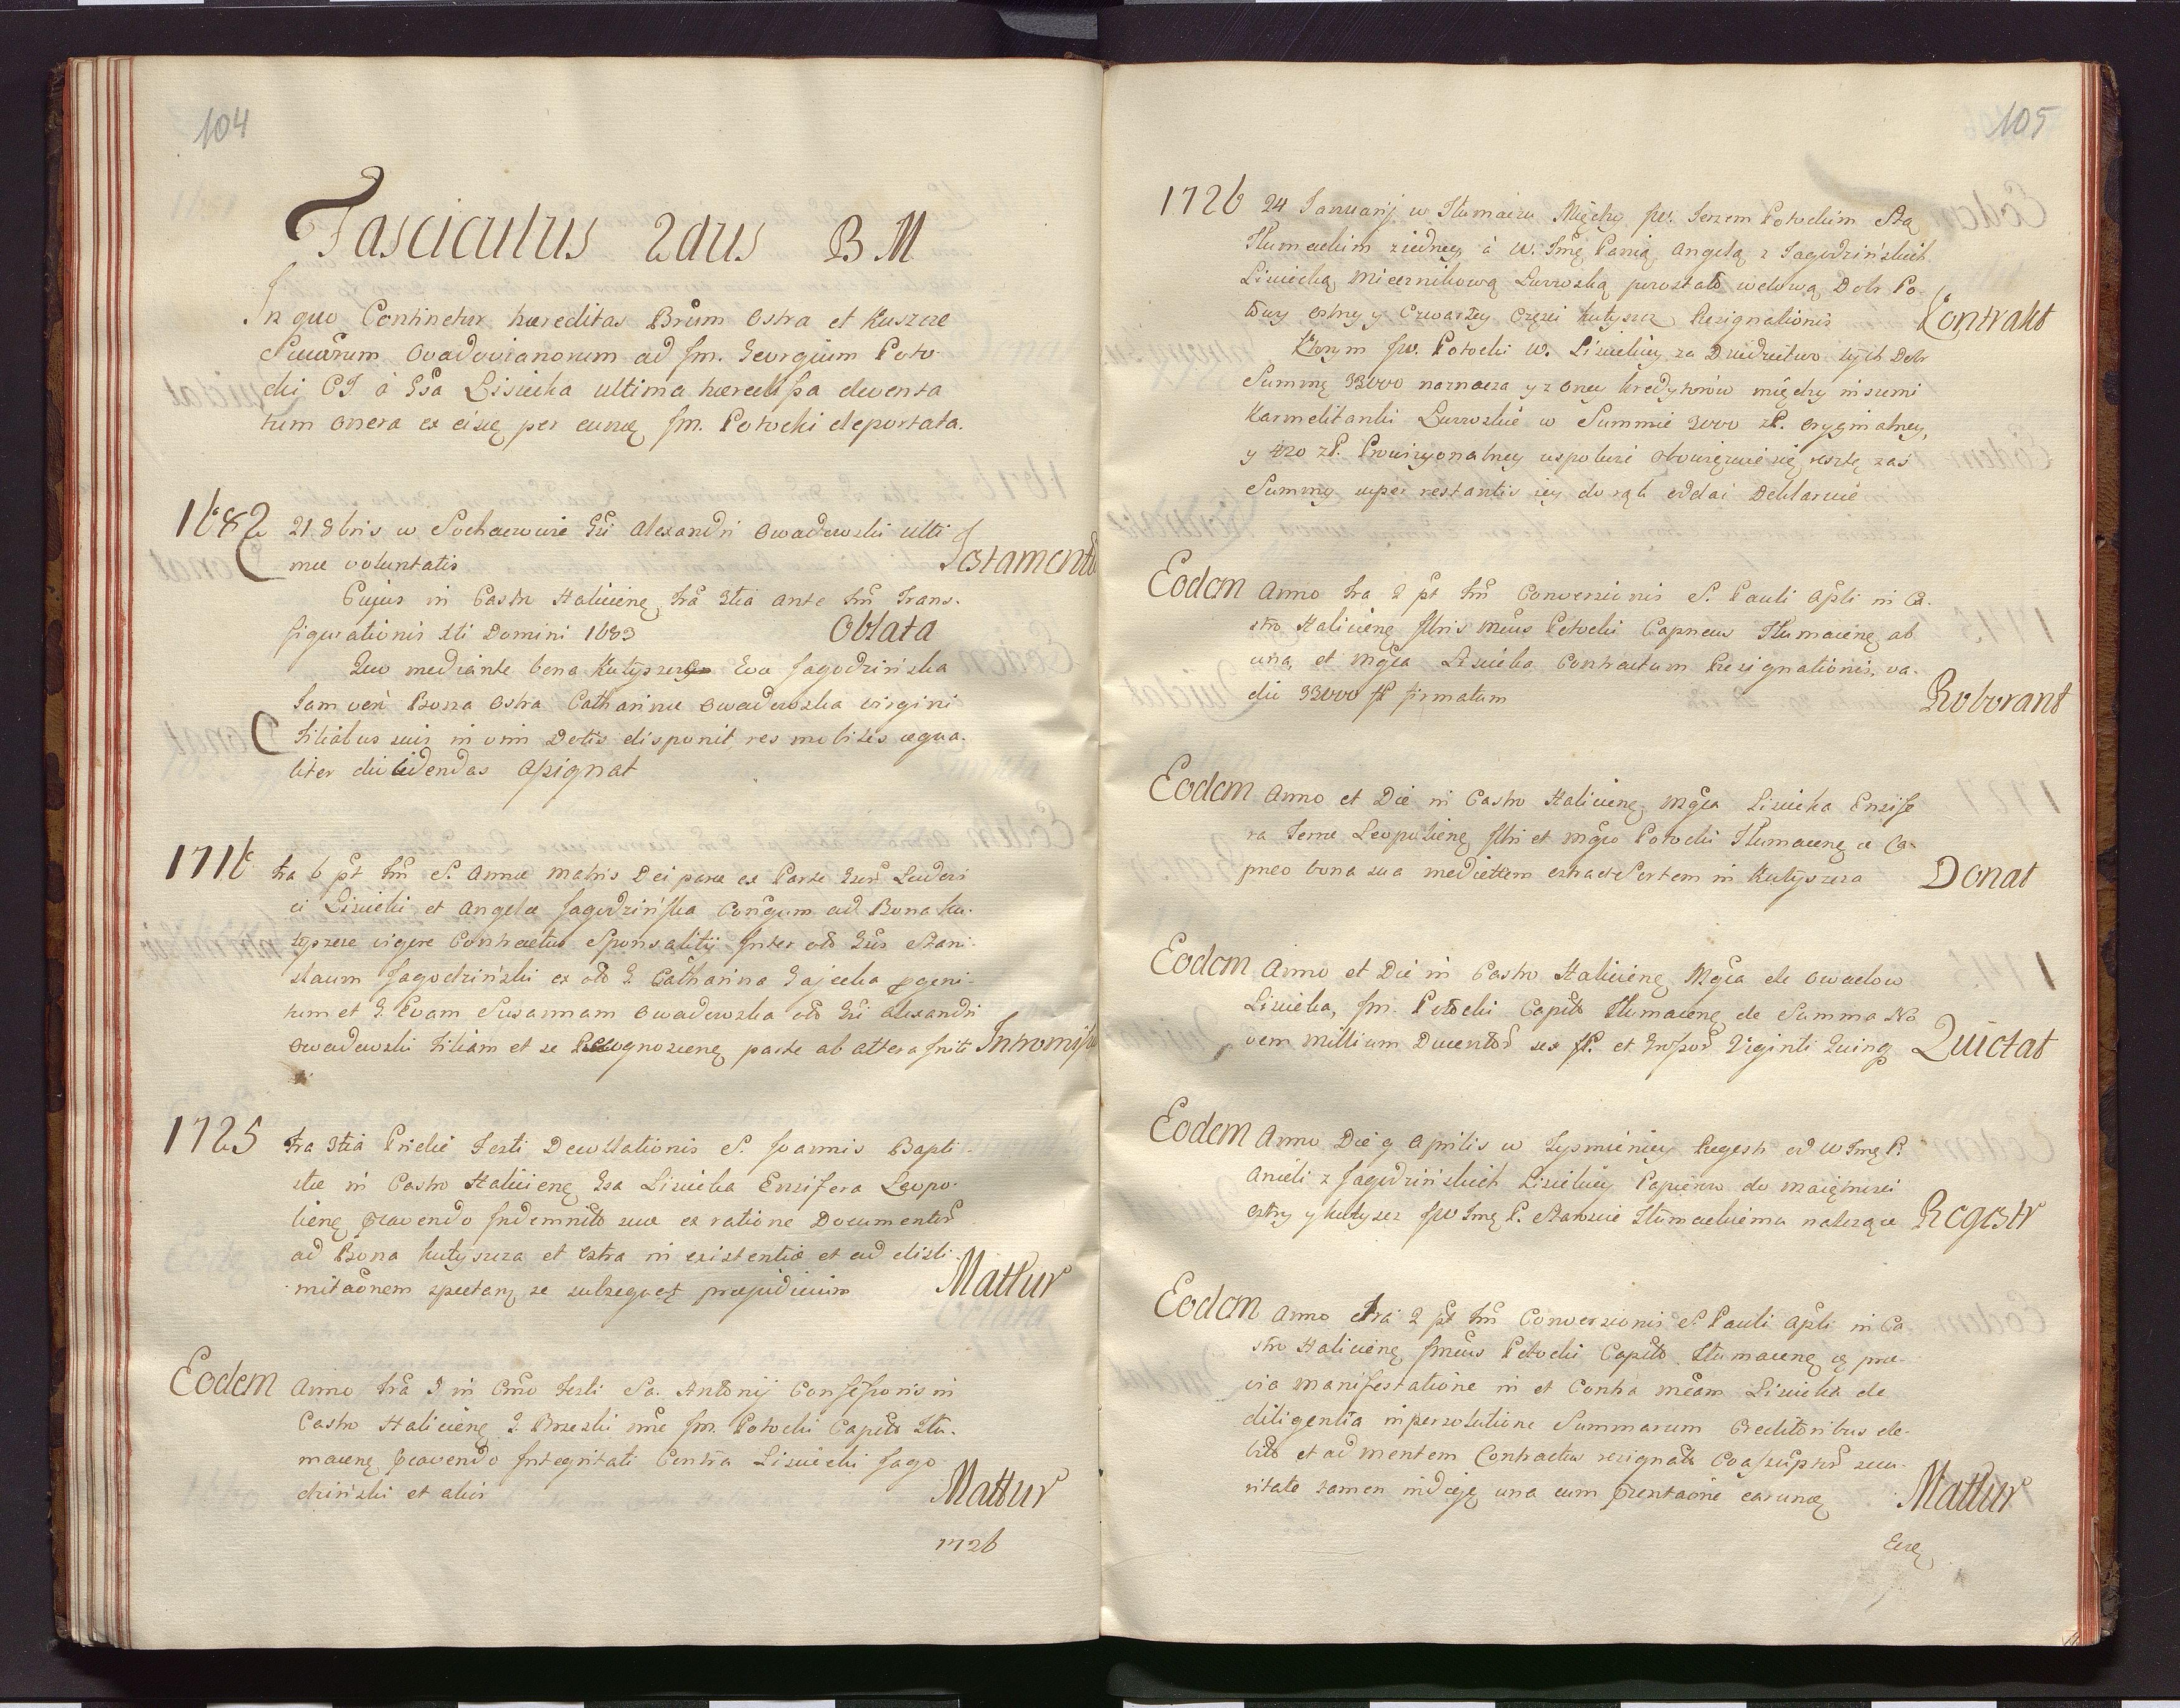 104
Fasciculus 2dus B M
In quo Continetur hæreditas Brum Ostra et Kuszcze
Owadovianorum ad Jm. Georgium Poto-
cki CT à Gsa Lisiecka ultima hæredissa deventa
tum onera ex eisq per eunq Jm. Potocki deportata.
1682 21 8bris w Sochaczewie Gsi Alexandri Owadowski ulti
mæ voluntatis Testamentu
Cujus in Castro Halicieñ fra 3tia ante fm Trans-
figurationis Xti Domini 1683 Oblata
Quo mediante bona Kutyszcze Eva Jagodzińska
Tam veri Bona Ostra Catharinæ Owadowska virgini
filiabus suis in vim Dotis disponit, res mobiles æqua-
liter dividendas assignat
1716 fra 6 pt fm S. Annæ Matris Deiparæ ex Parte Gsor Ludovi
ci Lisiecki et Angelæ Jagodzińska Conjgum ad Bona Ku-
tyszcze vigore Contractus Sponsalitij Inter olb Gsus Stani-
slaum Jagodziński ex olb G Catharina Gajecka pgeni-
tum et G. Evam Susannam Owadowska olb Gsi Alexandri
Owadowski filiam et se Recognoscenq parte ab altera Initi Intromissio
1725 fra 3tia Pridie festi Decollationis S. Joannis Bapti-
stæ in Castro Halicienq Gsa Lisiecka Ensifera Leopo-
lienq præcavendo Indemnitb suæ ex ratione Documentor
ad Bona Kutyszcza et Ostra in existentiæ et ad disli-
mitaõnem spectanq se subsequeq præjudicium Mattur
Eodem Anno fra 5 in Cmo festi Sa. Antonij Confessoris in
Castro Halicienq G. Brzeski nne Jm. Potocki Capitb Tłu-
macenq præcavendo Integritati Contra Lisiecki Jago
dziński et alios Mattur
1726
105
1726 24 Januarij w Tłumaczu Między JW. Jerzem Potockim Stą
Tłumackim z iedney, à W. Jmę Panią Angelą z Jagodzińskich
Lisiecką Miecznikową Lwowską pozostałą wdową Dobr Po-
łowy Ostry y Czwartey Części Kutyszcz Resignationis Kontrakt
Ktorym JW. Potocki W. Lisieckiey za Dziedzictwo tych Dobr
Summę 33000 naznacza y z oney kredytorów między inszemi
Karmelitanki Lwowskie w Summie 3000 zł. oryginalney,
y 420 zł. Prowizyonalney uspokoić obowięzuie się, resztę zaś
Summy super restantis iey do rąk oddać Deklaruie
Eodem Anno fra 2 pt fm Conversionis S. Pauli Apli in Ca-
stro Halicienq Illris Mcus Potocki Capneus Tłumacenq ab
una, et Mgca Lisiecka Contractum Resignationis, va-
dio 33000 fl firmatum Roborant
Eodem Anno et Die in Castro Halicienq Mgca Lisiecka Ensife
ra Terræ Leopolienq Illri et Mgco Potocki Tłumacenq Ca-
pneo bona sua medietatem Ostra et Sortem in Kutyszcza Donat
Eodem Anno et Die in Castro Halicienq Mgca de Owadow
Lisiecka, Jm. Potocki Capitb Tłumacenq de Summa No
vem millium Ducentor sex fl. et Grossor Viginti Quinq Quietat
Eodem Anno Die 9 Aprilis w Tyśmienicy Regestr od W Jmę P.
Anieli z Jagodzińskich Lisieckiey Papierow do maiętności
Ostry y Kutyszcz JW Jmę P. Staroście Tłumackiemu należące Regestr
Eodem Anno fra 2 pt fm Conversionis S. Pauli Apli in Ca
stro Halicienq Jmcus Potocki Capitb. Tłumacenq præ-
via manifestatione in et Contra Mcam Lisiecka de
diligentia in persolutione Summarum Creditoribus de-
bitb et ad mentem Contractus resignatb secu-
ritate tamen una cum pntaone earunq Mattur